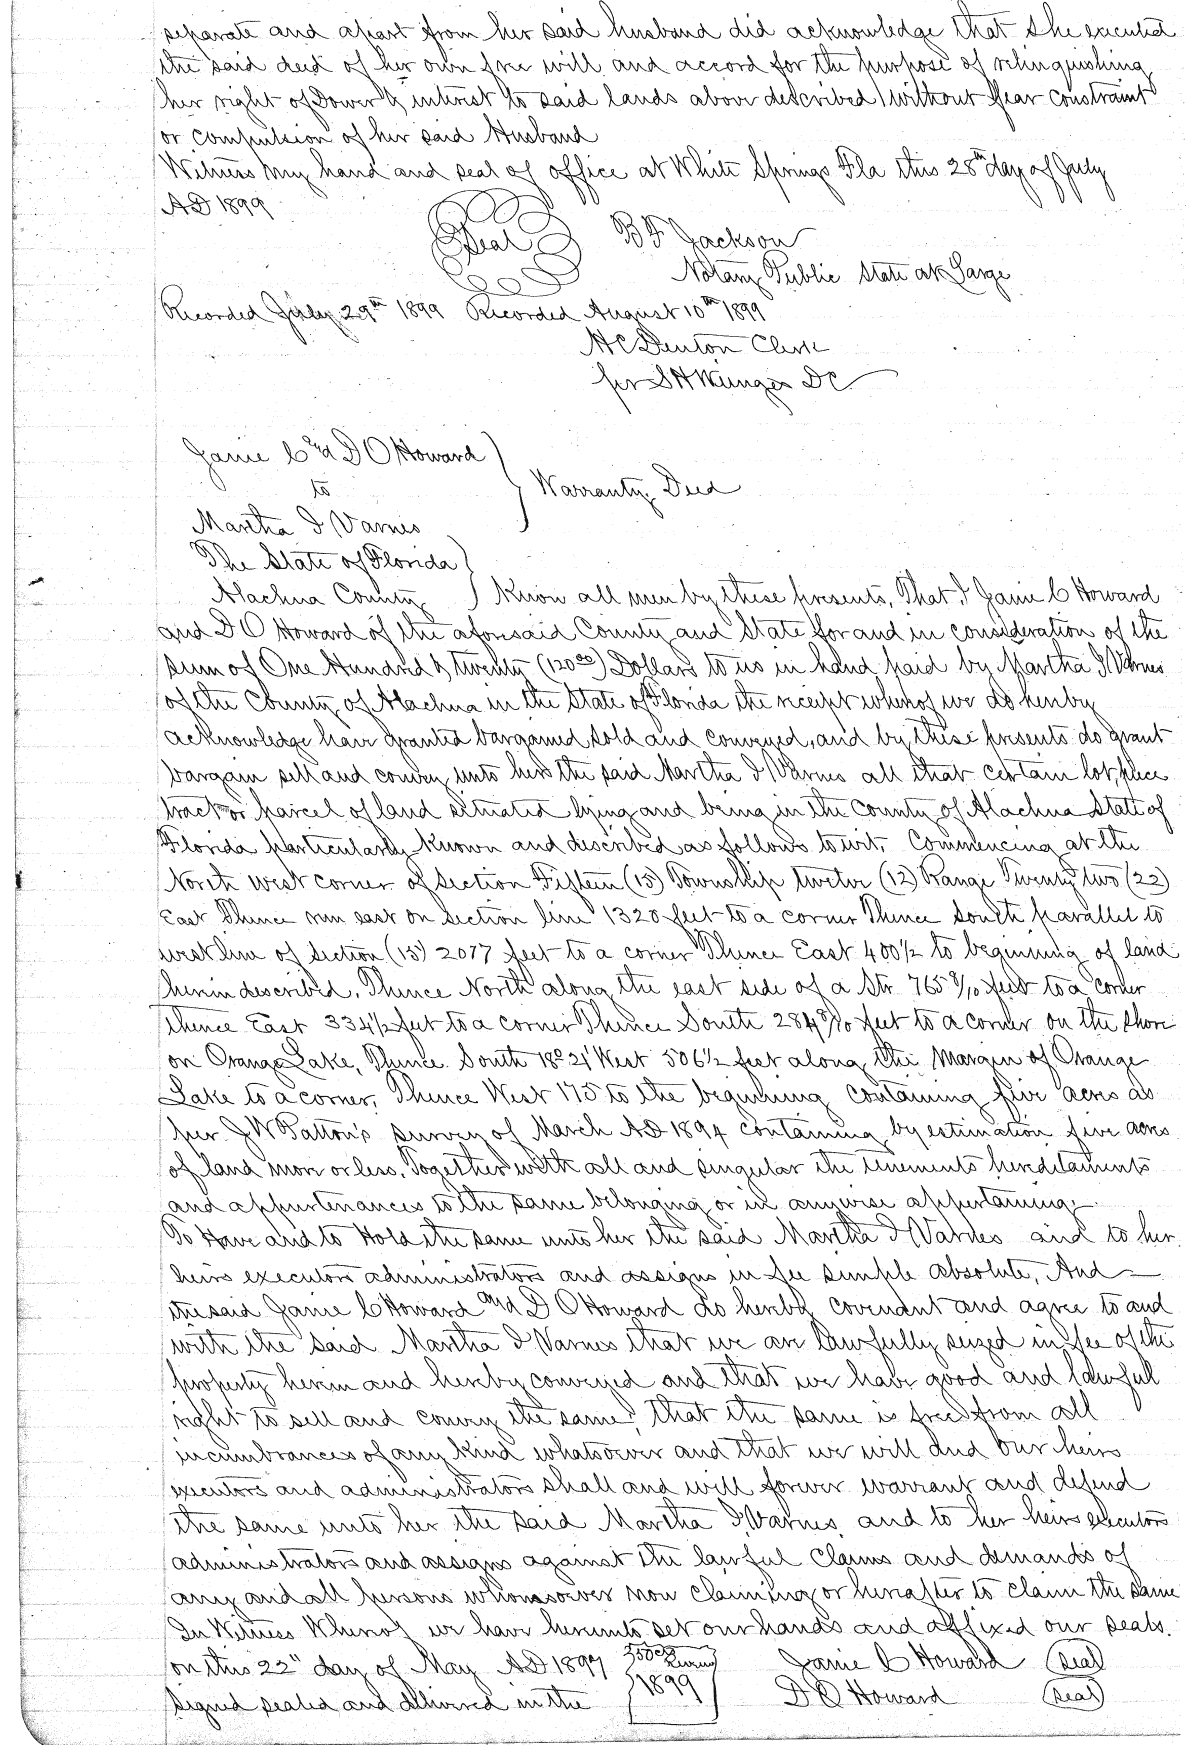 separate and apart from her said husband did acknowledge that she executed
the said deed of her own free will and accord for the purpose of relinquishing
her right of Dower & interest to said lands above described, without fear constraint
or compulsion of her said Husband
Witness my hand and seal of office at White Springs Fla this 28th day of July
AD 1899
Seal B F Jackson
Notary Public State at Large
Recorded July 29th 1899 Recorded August 10th 1899
H C Denton Clerk
per S H Wienges DC
Janie C and D O Howard
to Warranty Deed
Martha I Varnes
The State of Florida
Alachua County Know all men by these presents, That I Janie C Howard
and D O Howard of the aforesaid County and State for and in consideration of the
sum of One Hundred & twenty (120 00) Dollars to us in hand paid by Martha I Varnes
of the County of Alachua in the State of Florida the receipt whereof we do hereby
acknowledge have granted bargained, sold and conveyed, and by these presents do grant
bargain sell and convey unto her the said Martha I Varnes all that certain lot, piece
tract or parcel of land situated lying and being in the County of Alachua State of
Florida particularly known and described as follows to wit. Commencing at the
North west corner of Section Fifteen (15) Township twelve (12) Range Twenty two (22)
East Thence run east on section line 1320 feet to a corner Thence South parallel to
west line of section (15) 2077 feet to a corner Thence East 400½ to beginning of land
herin described, Thence North along the east side of a Str. 765 9/10 feet to a corner
thence East 334½ feet to a corner Thence South 284 9/10 feet to a corner on the shore
on Orange Lake, Thence South 18° 21' West 506½ feet along the Margin of Orange
Lake to a corner, Thence West 175 to the beginning containing five acres as
per J W Patton's survey of March AD 1894 containing by estimation five acres
of land more or less, Together with all and singular the tenements hereditaments
and appurtenances to the same belonging or in anywise appertaining:
To Have and to Hold the same unto her the said Martha I Varnes and to her
heirs executors administrators and assigns in fee simple absolute, And
the said Janie C Howard and D O Howard do hereby covenant and agree to and
with the said Martha I Varnes that we are lawfully seized in fee of the
property herein and hereby conveyed and that we have good and lawful
right to sell and convey the same, that the same is free from all
incumbrances of any kind whatsoever and that we will and our heirs
executors and administrators shall and will forever warrant and defend
the same unto her the said Martha I Varnes, and to her heirs executors
administrators and assigns against the lawful claims and demands of
any and all persons whomsoever now claiming or hereafter to claim the same
In Witness Whereof we have hereunto set our hands and affixed our seals.
on this 22" day of May AD 1897 Janie C Howard (seal)
Signed sealed and delivered in the 1899 D O Howard (seal)